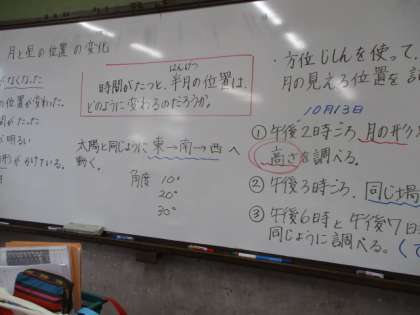 月と星の位置の変化
がなくなった
の位置が変わった。
が明るい
がかけている。
はんげつ
時間がたつと、半月の位置は、
どのように変わるのだろうか。
太陽と同じように東→南→西へ
動く。
角度 10°
20°
30°
・方位じしんを使って、
月の見える位置を
10月13日
①午後2時ごろ、月の
高さを調べる。
②午後3時ごろ、同じ場
③午後6時と午後7
同じように調べる。